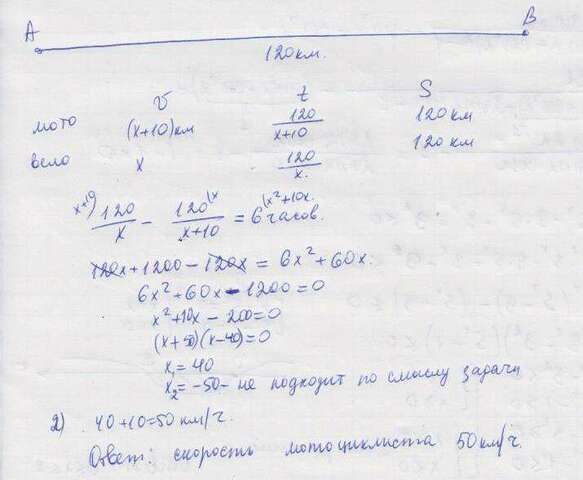 A B
120км.
V t S
мото (x+10)км 120/(x+10) 120км
вело x 120/x. 120км
x+10) 120/x - 120(x/(x+10) = 6 часов. (x²+10x.
120x+1200-120x = 6x²+60x.
6x²+60x-1200=0
x²+10x-200=0
(x+50)(x-40)=0
x₁=40
x₂=-50- не подходит по смыслу задачи
2) 40+10=50км/ч.
Ответ: скорость мотоциклиста 50км/ч.